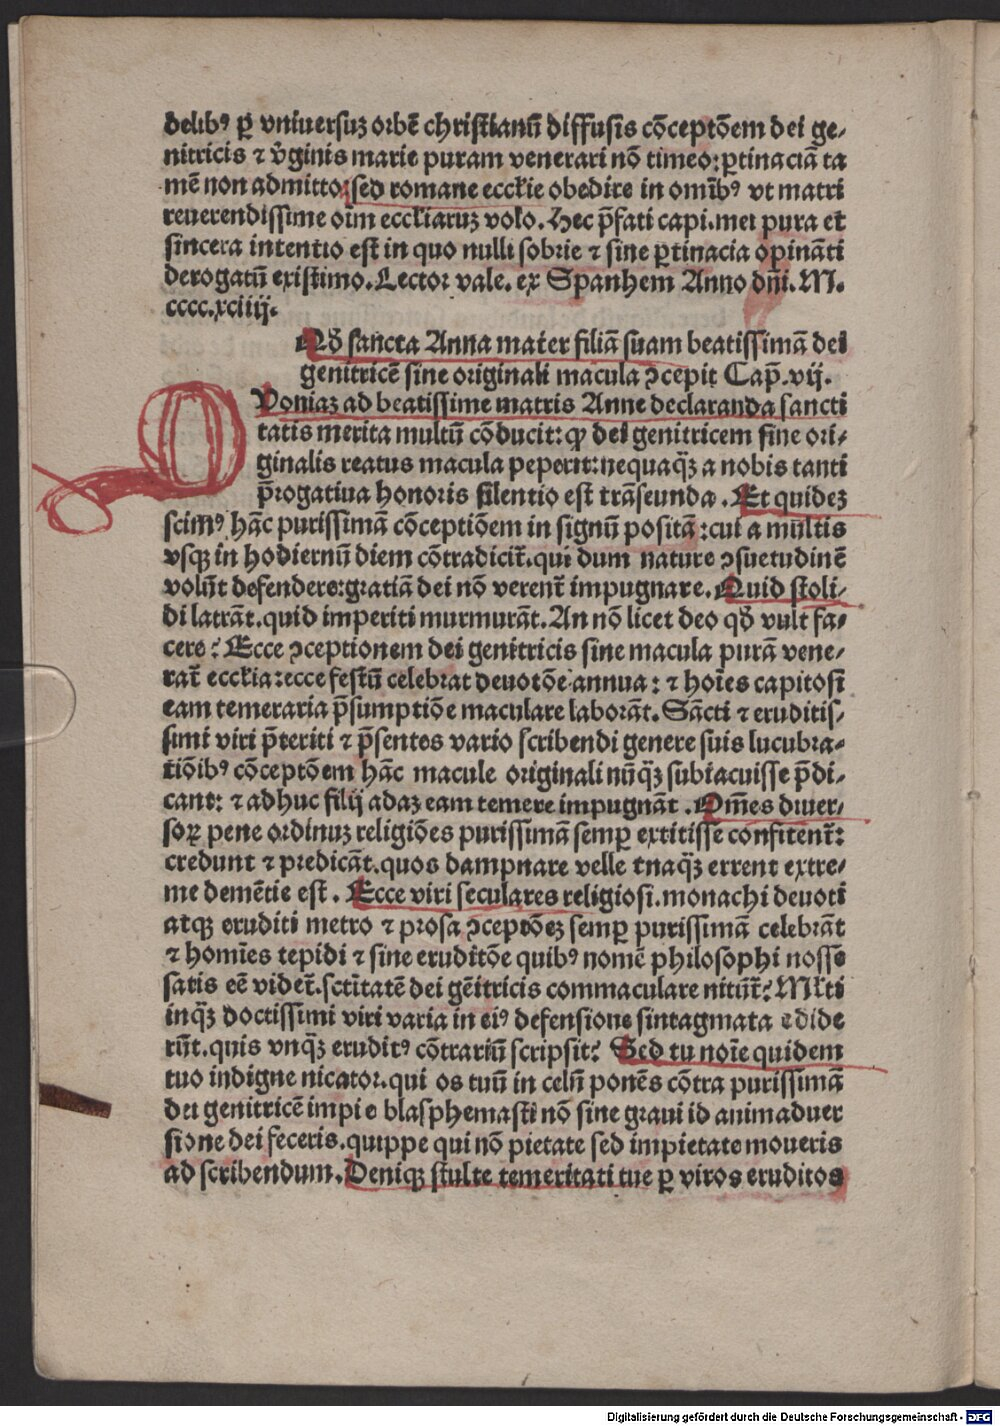 delibꝰ ꝑ vniuersuꝫ orbē christianū diffusis cōceptōem dei ge⸗
nitricis ⁊ v̄ginis marie puram venerari nō timeo: ꝑtinaciā ta
mē non admitto: sed romane eccl̄ie obedire in om̄ibꝰ vt matri
reuerendissime oīm eccl̄iaruꝫ volo. Hec p̄fati capi. mei pura et
sincera intentio est in quo nulli sobrie ⁊ sine ꝑtinacia opināti
derogatū existimo. Lector vale. ex Spanhem Anno dn̄i. M.
cccc.xciiij.
Qd̄ sancta Anna mater filiā suam beatissimā dei
genitricē sine originali macula ↄcepit Cap̄. vij.
QVoniaꝫ ad beatissime matris Anne declaranda sancti
tatis merita multū cōducit: ꝙ dei genitricem sine ori⸗
ginalis reatus macula peperit: nequaq̄ꝫ a nobis tanti
p̄rogatiua honoris silentio est trāseunda. Et quideꝫ
scimꝰ hāc purissimā cōceptiōem in signū positā: cui a multis
vsqꝫ in hodiernū diem cōtradicit̄. qui dum nature ↄsuetudinē
volūt defendere: gratiā dei nō verent̄ impugnare. Quid stoli⸗
di latrāt. quid imperiti murmurāt. An nō licet deo qd̄ vult fa⸗
cere? Ecce ↄceptionem dei genitricis sine macula purā vene⸗
rat̄ eccl̄ia: ecce festū celebrat deuotōe annua: ⁊ hoīes capitosi
eam temeraria p̄sumptiōe maculare laborāt. Sācti ⁊ eruditis⸗
simi viri p̄teriti ⁊ p̄sentes vario scribendi genere suis lucubra⸗
tiōibꝰ cōceptōem hāc macule originali nūq̄ꝫ subiacuisse p̄di⸗
cant: ⁊ adhuc filij adaꝫ eam temere impugnāt. Om̄es diuer⸗
soꝝ pene ordinuꝫ religiōes purissimā semꝑ extitisse confitent̄:
credunt ⁊ predicāt. quos dampnare velle tnaq̄ꝫ errent extre⸗
me demētie est. Ecce viri seculares religiosi. monachi deuoti
atqꝫ eruditi metro ⁊ prosa ↄceptōeꝫ semꝑ purissimā celebrāt
⁊ homīes tepidi ⁊ sine eruditōe quibꝰ nomē philosophi nosse
satis eē videt̄. sctītatē dei gēitricis commaculare nitūt̄? Ml̄ti
inq̄ꝫ doctissimi viri varia in eiꝰ defensione sintagmata edide
rūt. quis vnq̄ꝫ eruditꝰ cōtrariū scripsit? Sed tu noīe quidem
tuo indigne nicator. qui os tuū in celū ponēs cōtra purissimā
dei genitricē impie blasphemasti nō sine graui id animaduer
sione dei feceris. quippe qui nō pietate sed impietate moueris
ad scribendum. Deniqꝫ stulte temeritati tue ꝑ viros eruditos
Digitalisierung gefördert durch die Deutsche Forschungsgemeinschaft - DFG